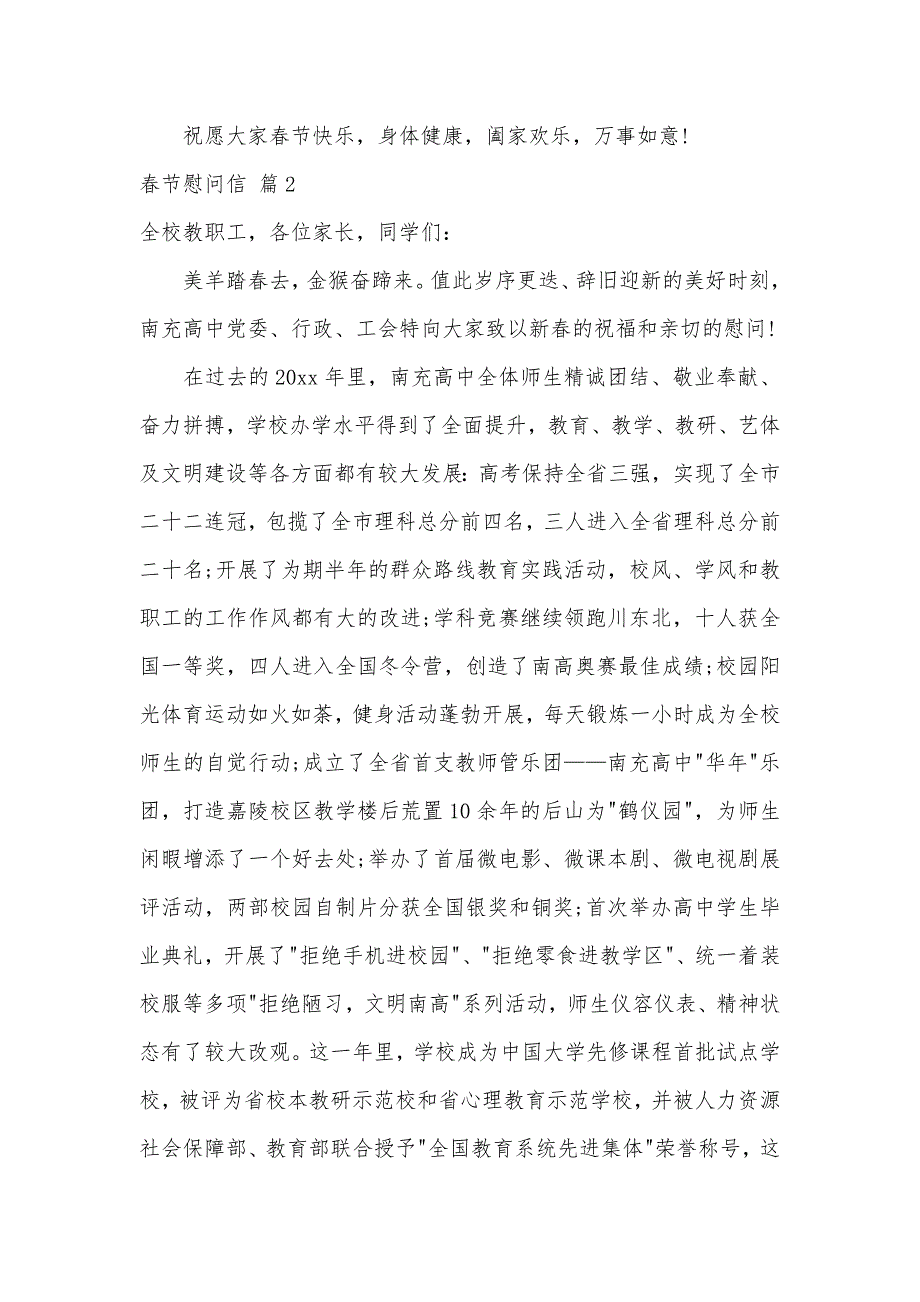 祝愿大家春节快乐，身体健康，阖家欢乐，万事如意!
春节慰问信 篇2
全校教职工，各位家长，同学们：
美羊踏春去，金猴奋蹄来。值此岁序更迭、辞旧迎新的美好时刻，
南充高中党委、行政、工会特向大家致以新春的祝福和亲切的慰问!
在过去的20xx年里，南充高中全体师生精诚团结、敬业奉献、
奋力拼搏，学校办学水平得到了全面提升，教育、教学、教研、艺体
及文明建设等各方面都有较大发展：高考保持全省三强，实现了全市
二十二连冠，包揽了全市理科总分前四名，三人进入全省理科总分前
二十名;开展了为期半年的群众路线教育实践活动，校风、学风和教
职工的工作作风都有大的改进;学科竞赛继续领跑川东北，十人获全
国一等奖，四人进入全国冬令营，创造了南高奥赛最佳成绩;校园阳
光体育运动如火如荼，健身活动蓬勃开展，每天锻炼一小时成为全校
师生的自觉行动;成立了全省首支教师管乐团——南充高中"华年"乐
团，打造嘉陵校区教学楼后荒置10余年的后山为"鹤仪园"，为师生
闲暇增添了一个好去处;举办了首届微电影、微课本剧、微电视剧展
评活动，两部校园自制片分获全国银奖和铜奖;首次举办高中学生毕
业典礼，开展了"拒绝手机进校园"、"拒绝零食进教学区"、统一着装
校服等多项"拒绝陋习，文明南高"系列活动，师生仪容仪表、精神状
态有了较大改观。这一年里，学校成为中国大学先修课程首批试点学
校，被评为省校本教研示范校和省心理教育示范学校，并被人力资源
社会保障部、教育部联合授予"全国教育系统先进集体"荣誉称号，这